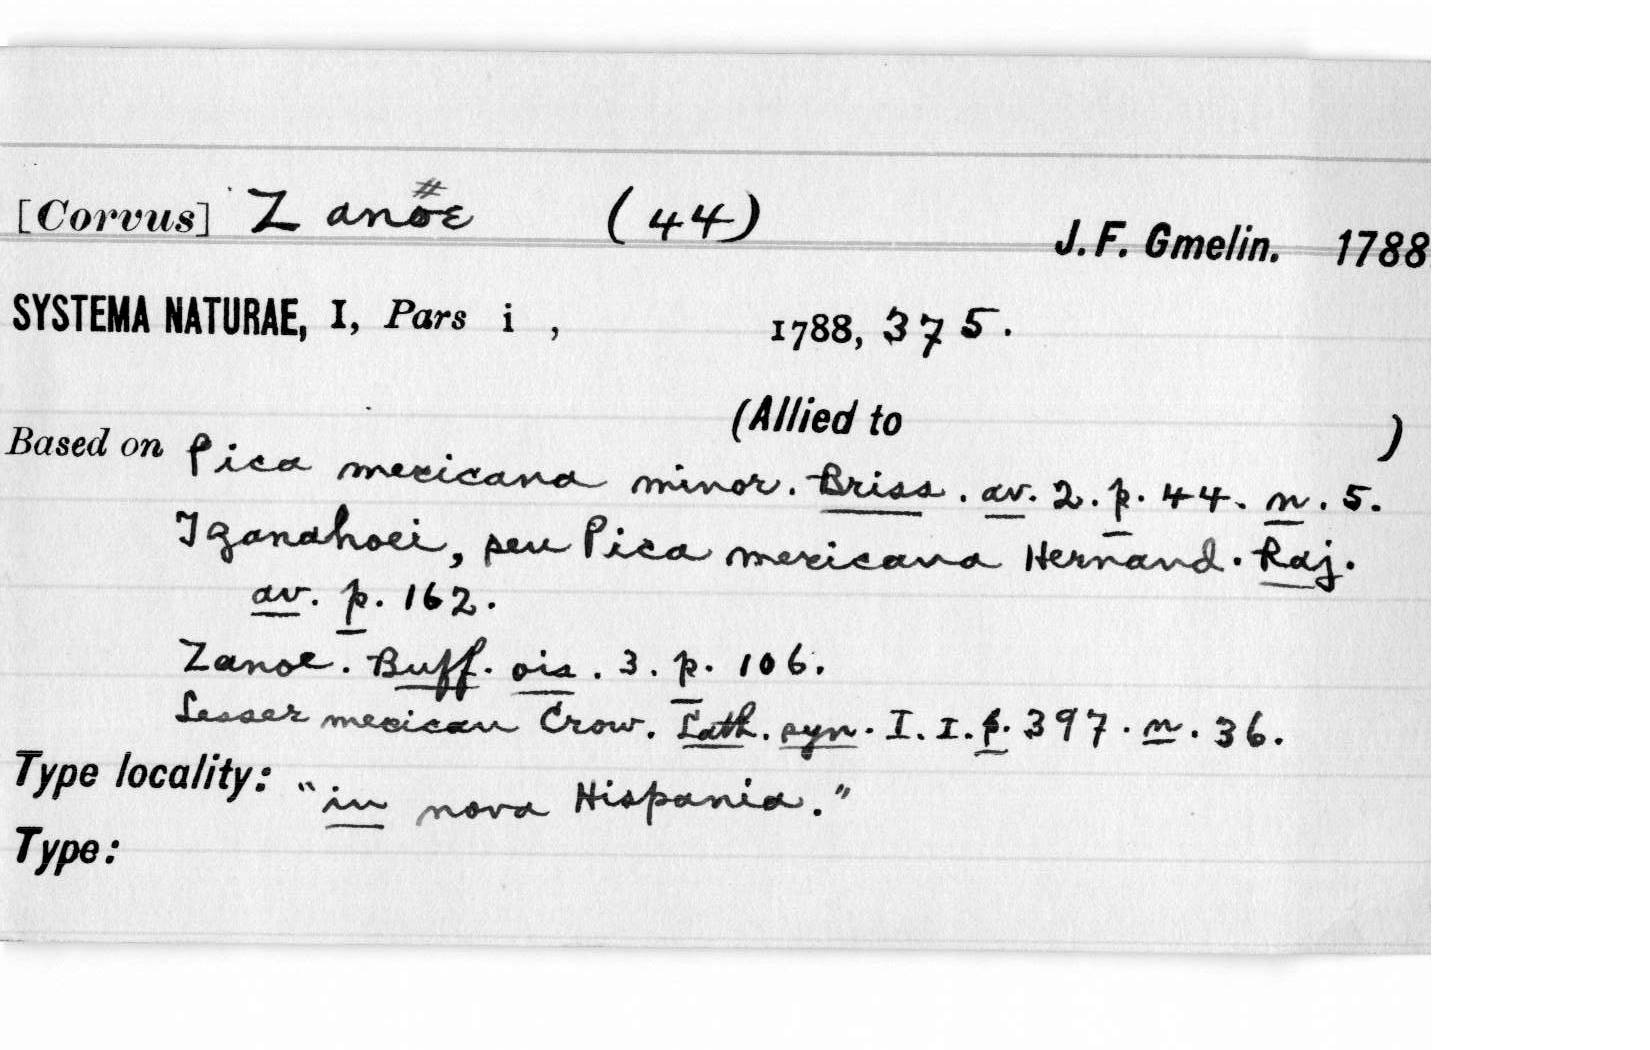 [Corvus] Zanoe (44)
#
J. F. Gmelin. 1788
SYSTEMA NATURAE, I, Pars i , 1788, 375.
(Allied to )
Based on Pica mexicana minor. Briss. av. 2. p. 44. n. 5.
Izanahoei, seu Pica mexicana Hernand. Raj.
av. p. 162.
Zanoe. Buff. ois. 3. p. 106.
Lesser mexican Crow. Lath. syn. I. I. p. 397. n. 36.
Type locality: "in nova Hispania."
Type: